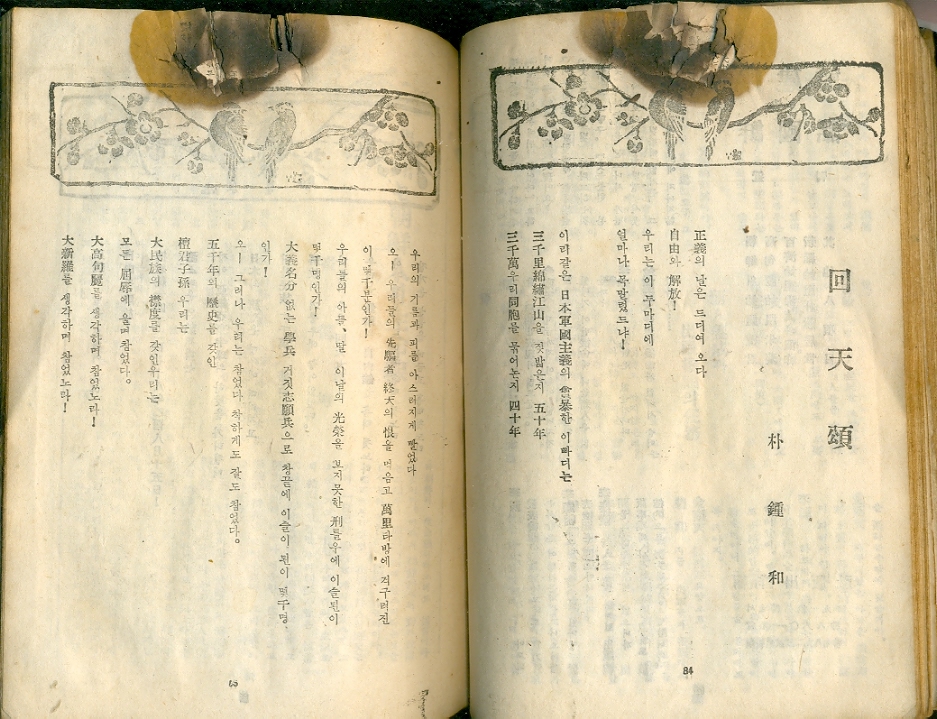 回天頌
朴鍾和
正義의 날은 드디여 오다
自由와 解放!
우리는 이 두마디에
얼마나 목말렀드냐!
이리같은 日本軍國主義의 貪暴한 이빠디는
三千里錦繡江山을 짓밟은지 五十年
三千萬우리同胞를 묶어논지 四十年
84
우리의 기름과 피를 아스러지게 빨었다
오— 우리들의 先驅者 終天의 恨을 먹음고 萬里타방에 거구러진
이 몇千분인가!
우리들의 아들、딸 이날의 光榮을 보지못한 刑틀우에 이슬된이
몇千명인가!
大義名分 없는 學兵 거짓志願兵으로 창끝에 이슬이 된이 몇千명
인가!
오— 그러나 우리는 참었다 착하게도 잘도 참었다。
五千年의 歷史를 갖인
檀君子孫 우리는
大民族의 襟度를 갖인우리는
모든 屈辱에 울며 참었다。
大高句麗를 생각하며 참었노라!
大新羅를 생각하며 참었노라!